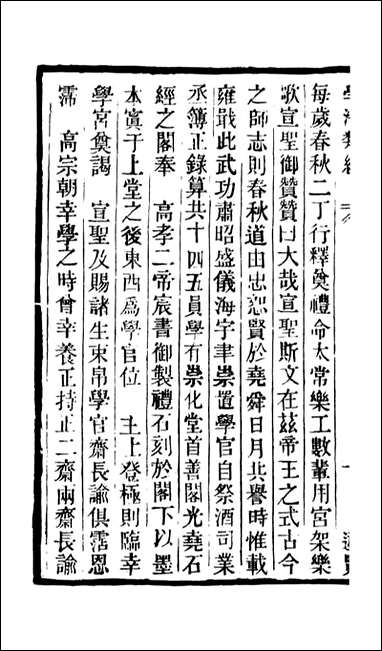 每歲春秋二丁行釋奠禮命太常樂工數輩用宮架樂
歌宣聖御贊贊曰大哉宣聖斯文在茲帝王之式古今
之師志則春秋道由忠恕賢於堯舜日月其譽時惟載
雍戢此武功肅昭盛儀海宇聿崇置學官自祭酒司業
丞簿正錄算共十四五員學有崇化堂首善閣光堯石
經之閣奉 高孝二帝宸書御製禮石刻於閣下以墨
本寘于上堂之後東西爲學官位 主上登極則臨幸
學宮奠謁 宣聖及賜諸生束帛學官齋長諭俱霑恩
霈 高宗朝幸學之時曾幸養正持正二齋兩齋長諭